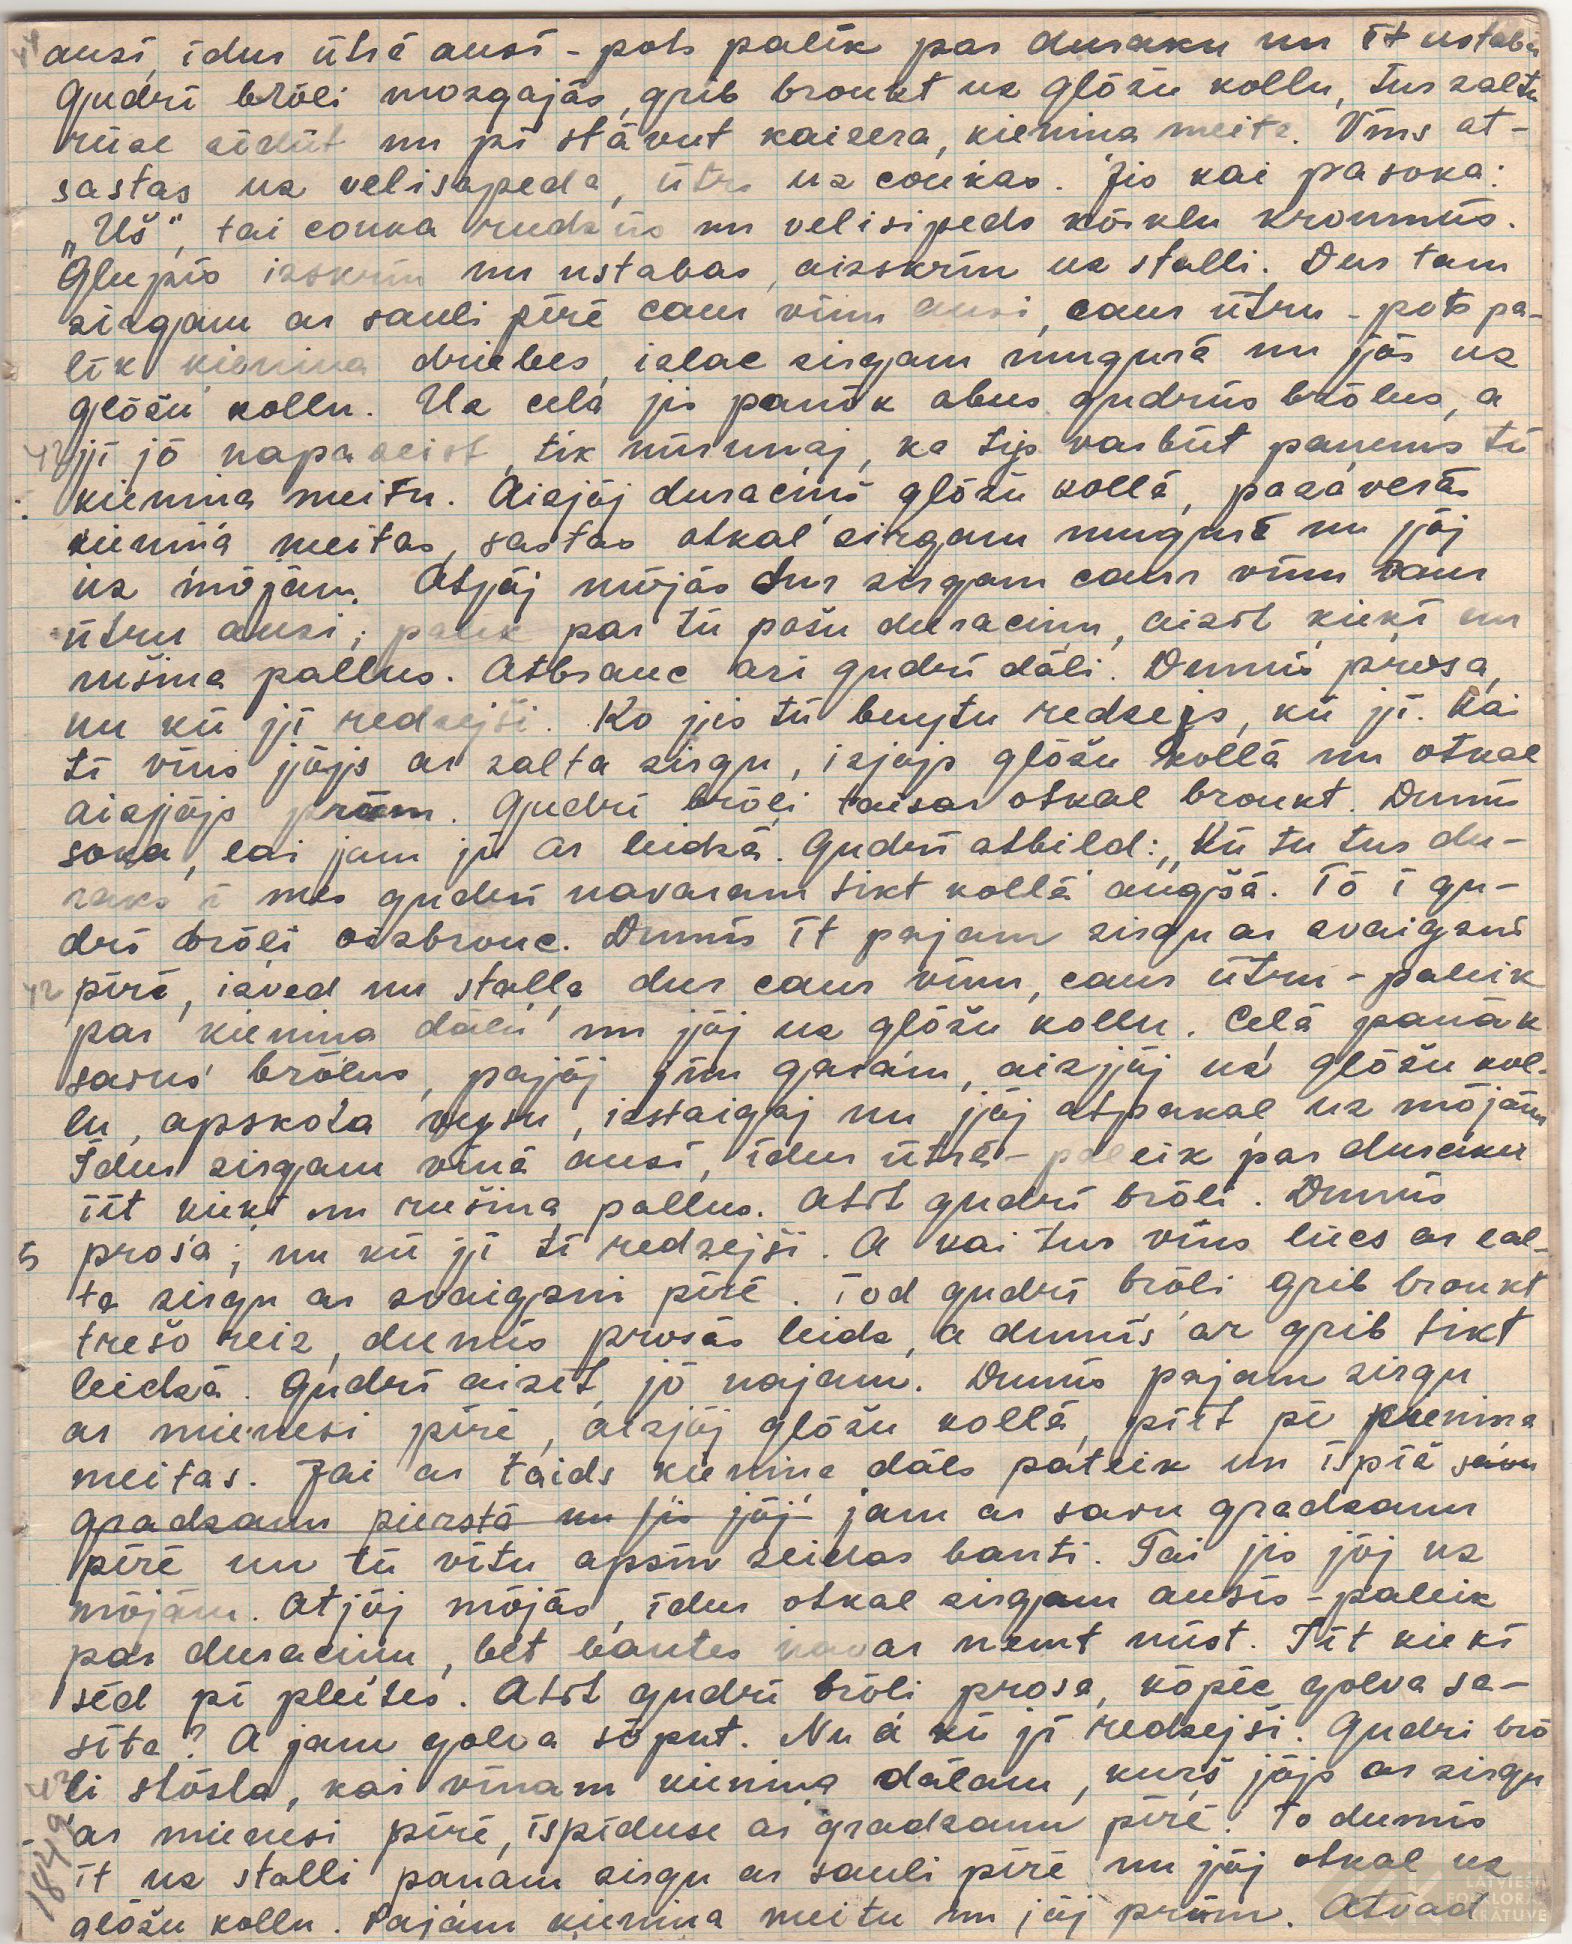 ausī, īdur ūtrā ausī - pots palīk par duraku un īt ustabā
Gudrī brōli mozgajās, grib braukt uz glōžu kollu, tur zalta
rūze zīdūt un pī stāvūt kaizera, kieniņa meita. Vīns at-
sastas uz velisapeda, ūtrs uz coukas. Jis kai pasoka:
„Uš", tai couka rudzūs un velisipeds kōrklu kroumūs.
Glupīs izskrīn nu ustabas, aizskrīn uz stalli. Dur tam
zirgam ar sauli pīrē caur vīnu ausi, caur ūtru - pots pa-
līk kieniņa driebes, izlac zirgam mugurā un jōj uz
glōžu kollu. Uz ceļa jis panōk abus gudrūs brōļus, a
jī jō napazeist, tik nūrunaj, ka tys varbūt paņems tū
kieniņa meitu. Aizjōj duraciņš glōžu kollā, pazaveras
kieniņa meitas, sastas otkal zirgam mugurā un jōj
uz mōjām. Atjōj mōjās dur zirgam caur vīnu caur
ūtru ausi, palīk par tū pošu duraciņu, aizīt kiekī un
rušina pallus. Atbrauc arī gudrī dāli. Dumīs prosa,
nu kū jī redzejši. Ko jis tū buytu redzejs, kū jī. Kai
tī vīns jōjs ar zalta zirgu, izjōjs glōžu kollā un otkal
aizjōjs prūm. Gudrī brōli taisas otkal braukt. Dumīs
soka, lai jam jū ar leidzā. Gudrī atbild: „Kū tu tur du-
raks i mes gudrī navaram tikt kollā augšā. Tō i gu-
drī brōli aizbrouc. Dumīs īt pajam zirgu ar zvaigzni
pīrē, izved nu staļļa, dur caur vīnu, caur ūtru - paliik
par kieniņa dālu un jōj uz glōžu kollu. Ceļā panāk
sovus brōļus, pajōj jīm garām, aizjōj uz glōžu kol-
lu, apskota vysu, izstaigaj un jōj atpakal uz mōjām
Īdur zirgam vīnā ausī, īdur ūtrā - paleik par duraku
iīt kiekī un rušina pallus. Atīt gudrī brōli. Dumīs
prosa; nu kū jī tī redzejši. A kai tur vīns lūcs ar zal-
ta zirgu ar zvaigzni pīrē. Tod gudrī brōli grib braukt
trešo reiz, dumīs prosās leidz, a dumīs ar grib tikt
leidzā. Gudrī aizīt, jō najam. Dumīs pajam zirgu
ar mienesi pīrē, aizjōj glōžu kollā, pīīt pī kieniņa
meitas. Jai ar taids kieniņa dāls pateik un īspīž savu
gradzanu pierstā un jis jōj jam ar savu gradzanu
pīrē un tū vītu apsīn zeidas banti. Tai jis jōj uz
mōjām. Atjōj mōjās, īdur otkal zirgam ausīs - paleik
par duraciņu, bet bantes navar nemt nūst. Īīt kiekī
sēd pī pleites. Atīt gudrī brōli prosa, kōpēc golva sa-
sīta? A jam golva sōput. Nu a kū jī redzejši. Gudrī brō
li stōsta, kai vīnam kieniņa dālam, kurš jōjs ar zirgu
ar mienesi pīrē, īspīduse ar gradzanu pīrē. To dumīs
īt uz stalli paņam zirgu ar sauli pīrē un jōj otkal uz
glōžu kollu. Pajam kieniņa meitu un jōj prūm. Atvad
42
42
5
1849
LATVIEŠU
FOLKLORAS
KRĀTUVE